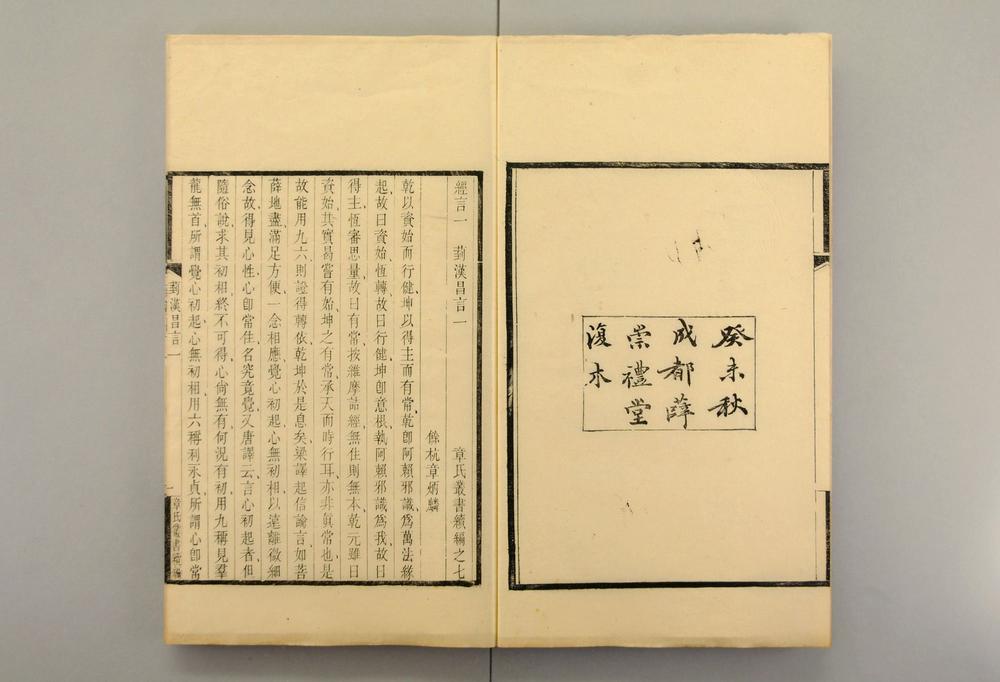 癸未秋
成都薛
崇禮堂
復本
經言一　菿漢昌言一　章氏叢書續編之七
餘杭章炳麟
乾以資始而行健、坤以得主而有常、乾卽阿賴邪識、爲萬法緣
起、故曰資始、恆轉故曰行健、坤卽意根、執阿賴邪識爲我、故曰
得主、恆審思量、故曰有常、按維摩詰經、無住則無本、乾元雖曰
資始、其實曷嘗有始、坤之有常、承天而時行耳、亦非眞常也、是
故能用九六、則證得轉依、乾坤於是息矣、梁譯起信論言、如菩
薩地盡、滿足方便、一念相應、覺心初起、心無初相、以遠離微細
念故、得見心性、心卽常住、名究竟覺、又唐譯云、言心初起者、但
隨俗說、求其初相、終不可得、心尙無有、何況有初、用九稱見羣
龍無首、所謂覺心初起、心無初相、用六稱利永貞、所謂心卽常
菿漢昌言一
章氏叢書續編